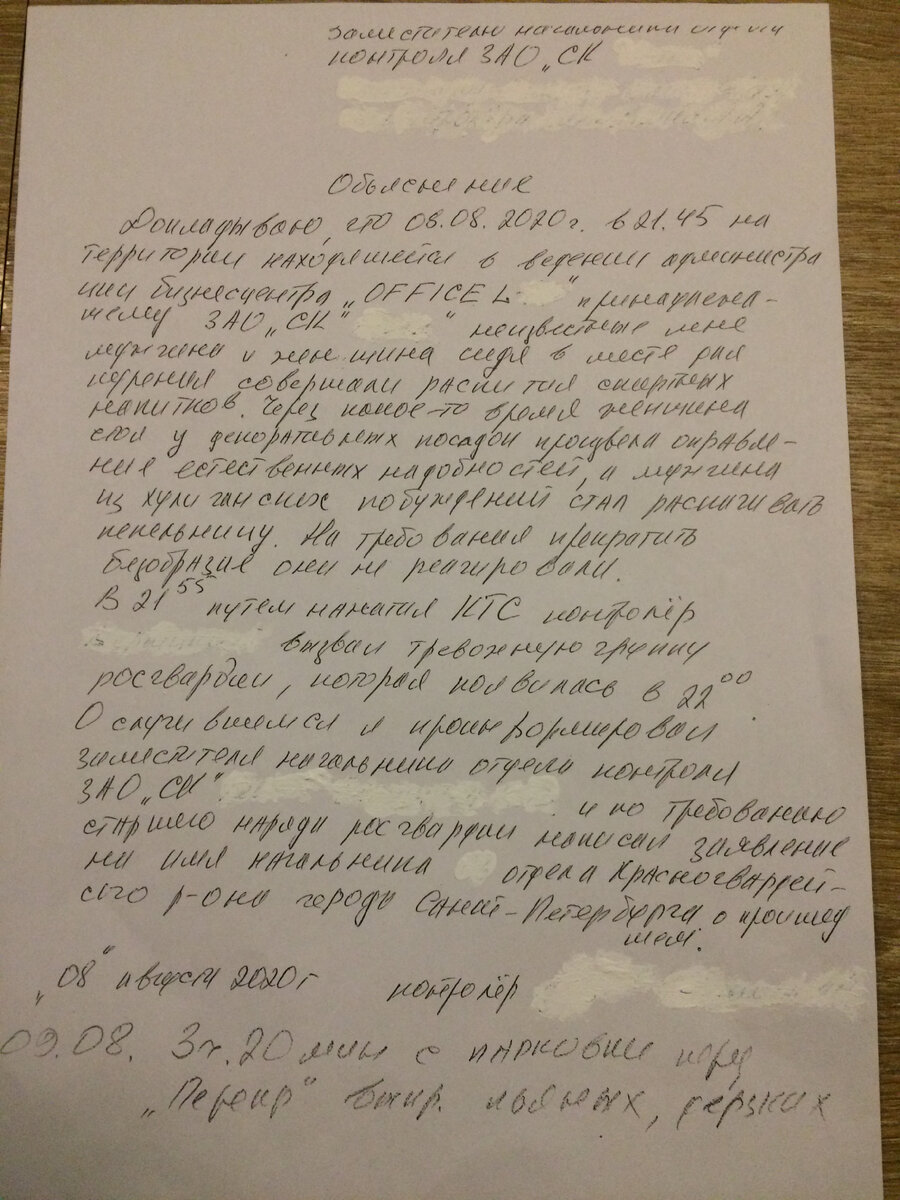 заместителю начальника отдела
контроля ЗАО „СК
Объяснение
Докладываю, что 08.08.2020г. в 21.45 на
территории находящейся в ведении администра
ции бизнесцентра „OFFICE L " принадлежа-
щему ЗАО „СК" " неизвестные мне
мужчина и женщина сидя в месте для
курения совершали распития спиртных
напитков. Через какое-то время женщина
стоя у декоративных посадок произвела оправле-
ние естественных надобностей, а мужчина
из хулиганских побуждений стал раскачивать
пепельницу. На требования прекратить
безобразие они не реагировали.
В 21⁵⁵ путем нажатия КТС контролёр
вызвал тревожную группу
росгвардии, которая появилась в 22⁰⁰
О случившемся я проинформировал
заместителя начальника отдела контроля
ЗАО „СК" и по требованию
старшего наряда росгвардии написал заявление
на имя начальника отдела Красногвардей-
ского р-она города Санкт-Петербурга о произшед
шем.
„08" августа 2020г контролёр
09.08. 3ч.20мин с парковки перед
пьяных, дерзких